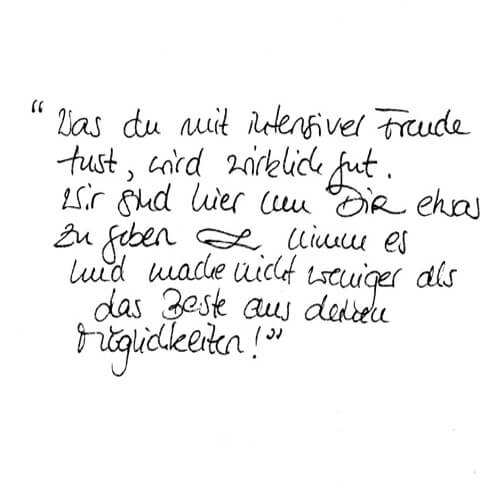 “Was du mit intensiver Freude
tust, wird wirklich gut.
Wir sind hier um DIR etwas
zu geben & nimm es
und mache nicht weniger als
das Beste aus deinen
Möglichkeiten!”